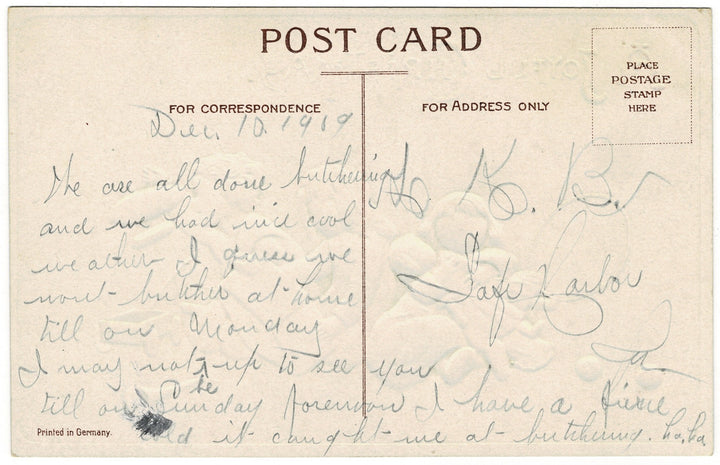 POST CARD
PLACE
POSTAGE
STAMP
HERE
FOR CORRESPONDENCE
FOR ADDRESS ONLY
Dec. 10. 1919
We are all done butchering
and we had nice cool
weather I guess we
wont butcher at home
till on Monday
I may not be up to see you
till on Sunday forenoon I have a fierce
cold it caught me at butchering. ha, ha
H. K. B.
Safe Harbor
Pa.
Printed in Germany.